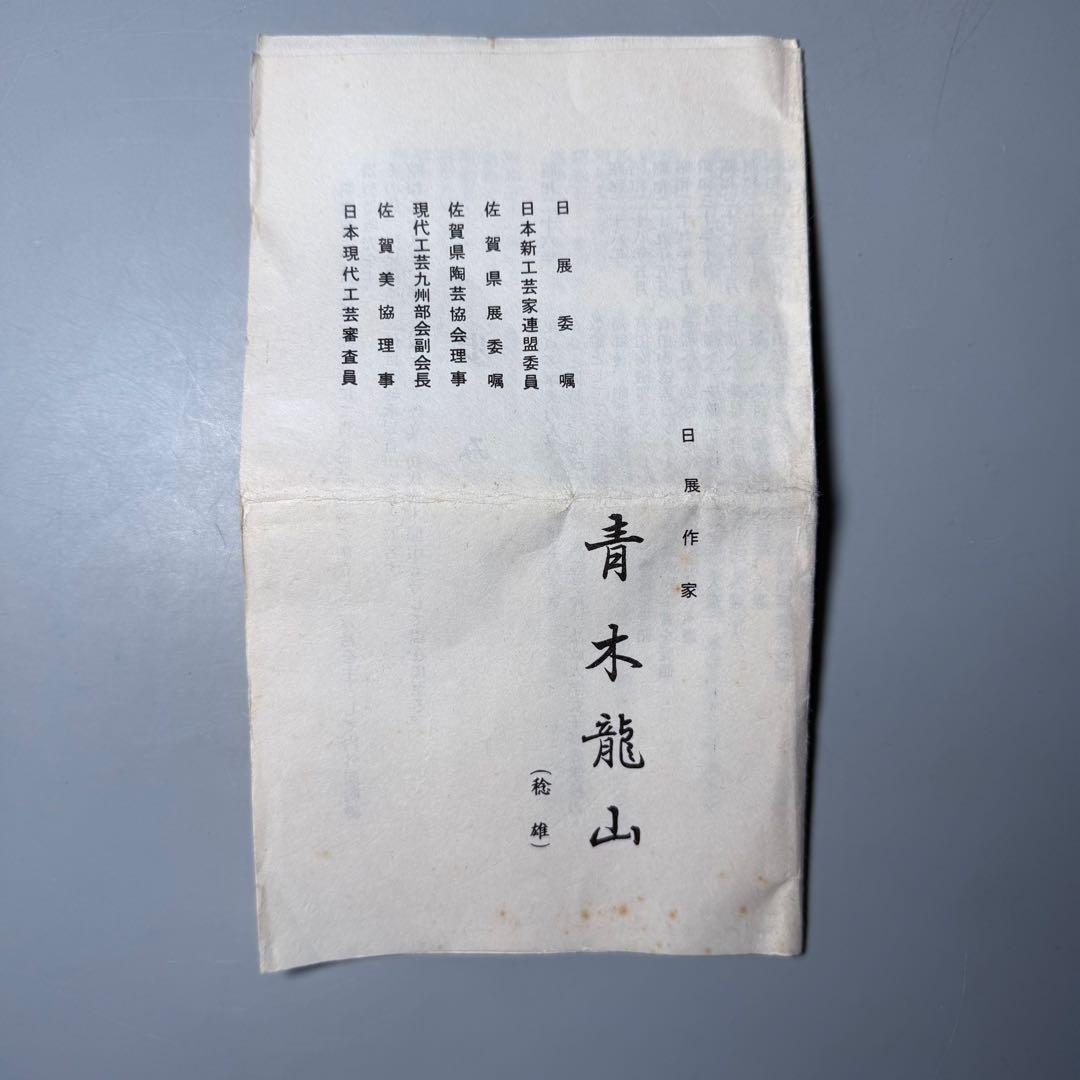 日展作家
青木龍山
（稔雄）
日展委嘱
日本新工芸家連盟委員
佐賀県展委嘱
佐賀県陶芸協会理事
現代工芸九州部会副会長
佐賀美協理事
日本現代工芸審査員